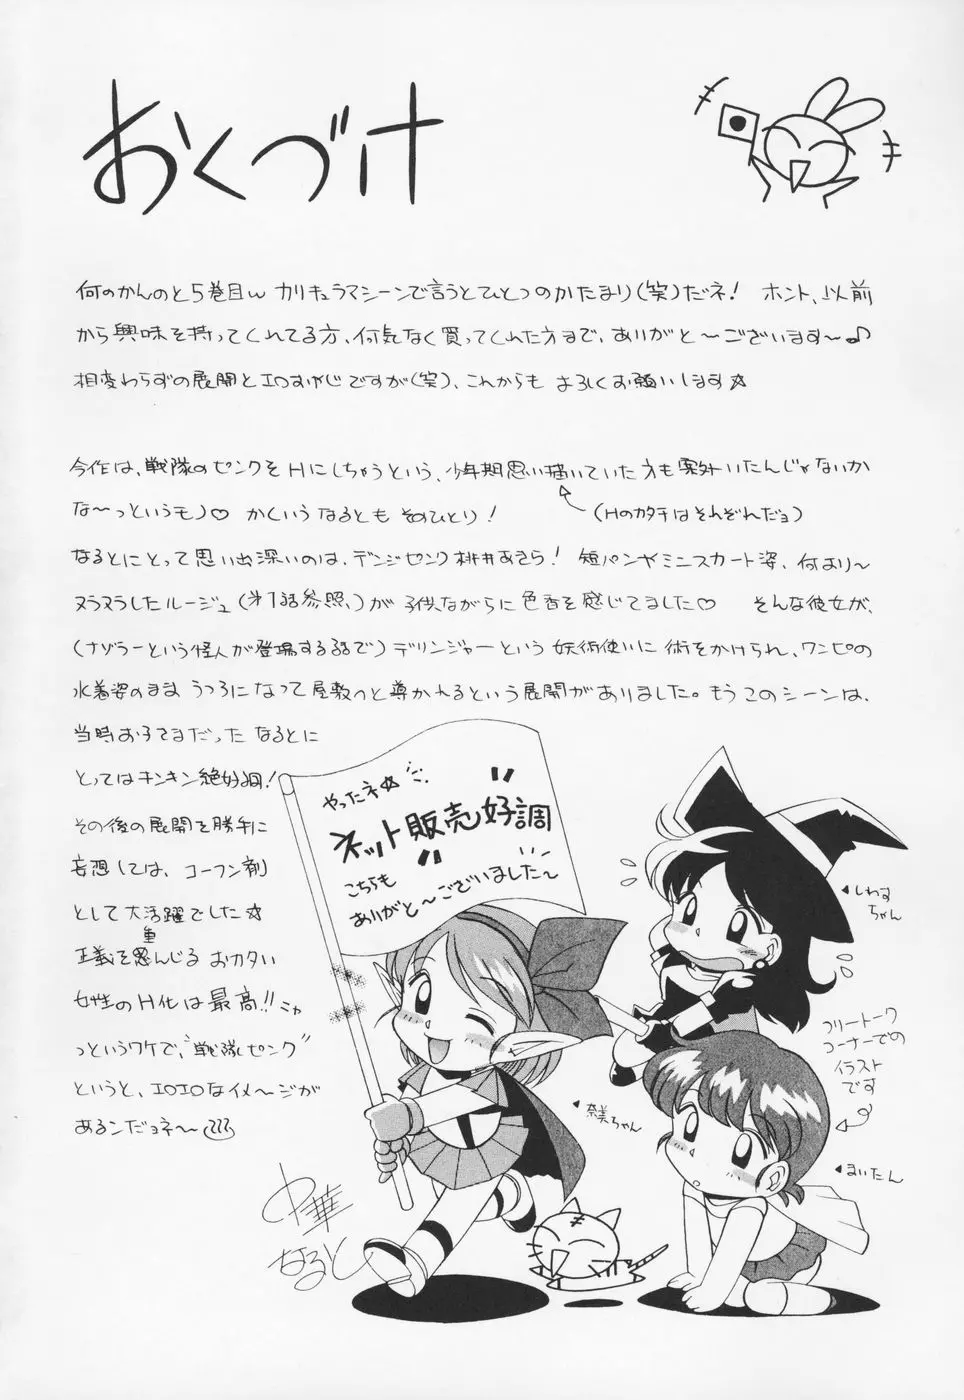 おくづけ
何のかんのと5巻目w カリキュラマシーンで言うとひとつのかたまり(笑)だネ! ホント、以前
から興味を持ってくれてる方、何気なく買ってくれた方まで、ありがと〜ございます〜♪
相変わらずの展開とエロおやじですが(笑)、これからも よろしくお願いします☆
今作は、戦隊のピンクをHにしちゃうという、少年期思い描いていた方も案外いたんじゃないか
な〜っというモノ♡ かくいう なるとも そのひとり!
(Hのカタチはそれぞれだョ)
なるとにとって思い出深いのは、デンジピンク 桃井あきら! 短パンやミニスカート姿、何より〜
ヌラヌラしたルージュ(第1話参照、)が 子供ながらに色香を感じてました♡ そんな彼女が、
(ナゾラーという怪人が登場する話で)デリンジャーという 妖術使いに 術をかけられ、ワンピの
水着姿のまま うつろになって屋敷へと導かれるという展開がありました。もう このシーンは、
当時お子さまだった なるとに
とってはキンキン絶好調!
その後の展開を勝手に
妄想しては、コーフン剤
として大活躍でした☆
正義を重んじる おカタい
女性のH化は最高!! ニャ
っというワケで、"戦隊ピンク"
というと、エロエロなイメ〜ジが
あるンだョネ〜
中華
なると
やったネ☆
"ネット販売好調"
こちらも
ありがと〜ございました〜
しわす
ちゃん
フリートーク
コーナーでの
イラスト
です
奈美ちゃん
まいたん